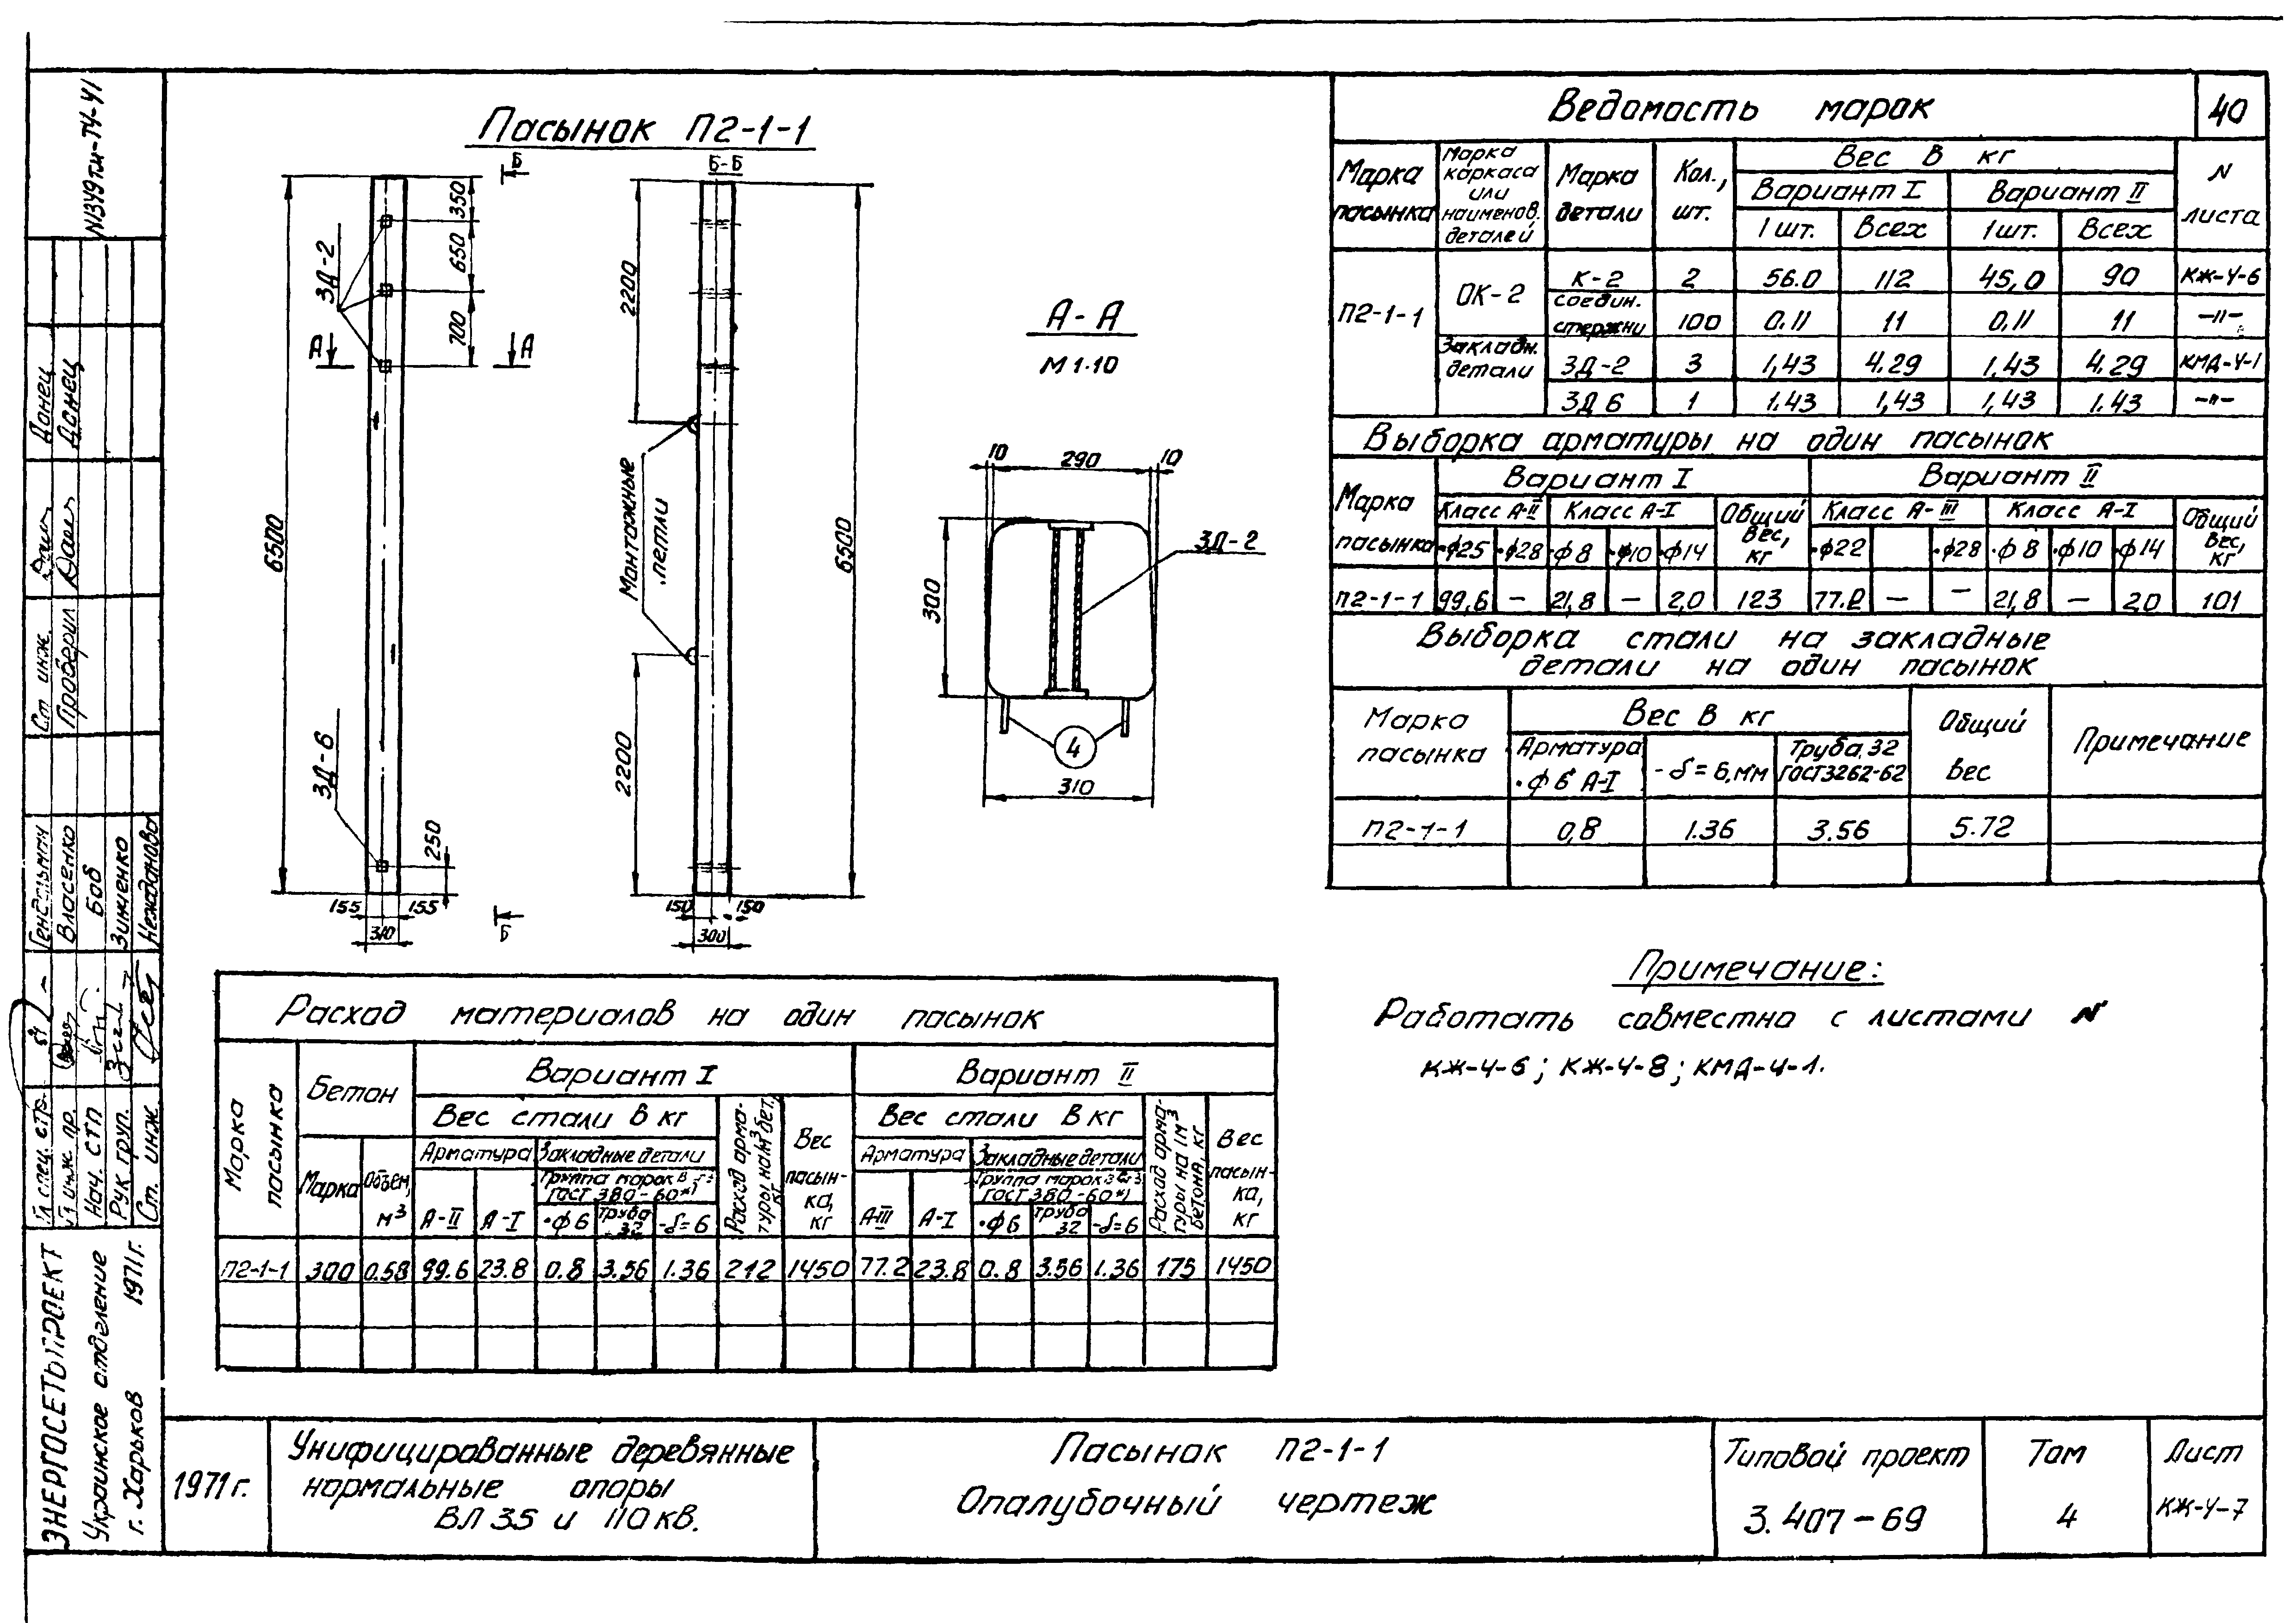 Пасынок П2-1-1
Б
Б-Б
350
650
700
2200
6500
6500
ЗД-2
А
А
А-А
М 1:10
Монтажные
петли
10
290
10
300
ЗД-2
4
310
ЗД-6
2200
250
155
155
310
Б
150
150
300
Ведомость марок
40
Марка
пасынка
Марка
каркаса
или
наименов.
деталей
Марка
детали
Кол.,
шт.
Вес в кг
Вариант I
Вариант II
1 шт.
Всех
1 шт.
Всех
N
листа
П2-1-1
ОК-2
К-2 2 56.0 112 45,0 90 КЖ-4-6
соедин.
стержни 100 0.11 11 0,11 11 -"-
Закладн.
детали
ЗД-2 3 1,43 4.29 1.43 4.29 КМД-4-1
ЗД 6 1 1.43 1,43 1,43 1.43 -"-
Выборка арматуры на один пасынок
Марка
пасынка
Вариант I
Вариант II
Класс А-II
Класс А-I
Общий
вес,
кг
Класс А-III
Класс А-I
Общий
вес,
кг
•ф25 •ф28 •ф8 •ф10 •ф14 •ф22 •ф28 •ф8 •ф10 •ф14
П2-1-1 99,6 — 21,8 — 2,0 123 77.2 — — 21,8 — 2,0 101
Выборка стали на закладные
детали на один пасынок
Марка
пасынка
Вес в кг
Арматура
•ф 6 А-I
-δ=6,мм
Труба 32
ГОСТ3262-62
Общий
вес
Примечание
П2-1-1 0,8 1.36 3.56 5.72
Примечание:
Работать совместно с листами N
КЖ-4-6; КЖ-4-8; КМД-4-1.
Расход материалов на один пасынок
Марка
пасынка
Бетон
Марка
Объем,
м³
Вариант I
Вес стали в кг
Арматура
Закладные детали
ГОСТ 380-60*)
А-II А-I •ф6 Труба
32 -δ=6
Расход арма-
туры на 1м³ бет.,
кг
Вес
пасын-
ка,
кг
Вариант II
Вес стали в кг
Арматура
Закладные детали
ГОСТ 380-60*)
А-III А-I •ф6 Труба
32 -δ=6
Расход арма-
туры на 1м³
бетона, кг
Вес
пасын-
ка,
кг
П2-1-1 300 0.58 99.6 23.8 0.8 3.56 1.36 212 1450 77.2 23.8 0.8 3.56 1.36 175 1450
N1349тм-Т4-41
Донец
Донец
Ст инж.
Проверил
Власенко
Боб
Зинченко
Нежданова
Гл спец. стр.
Гл инж. пр.
Нач. СТП
Рук. груп.
Ст. инж.
ЭНЕРГОСЕТЬПРОЕКТ
Украинское отделение
г. Харьков 1971г.
1971г.
Унифицированные деревянные
нормальные опоры
ВЛ 35 и 110 кв.
Пасынок П2-1-1
Опалубочный чертеж
Типовой проект
3.407-69
Том
4
Лист
КЖ-4-7